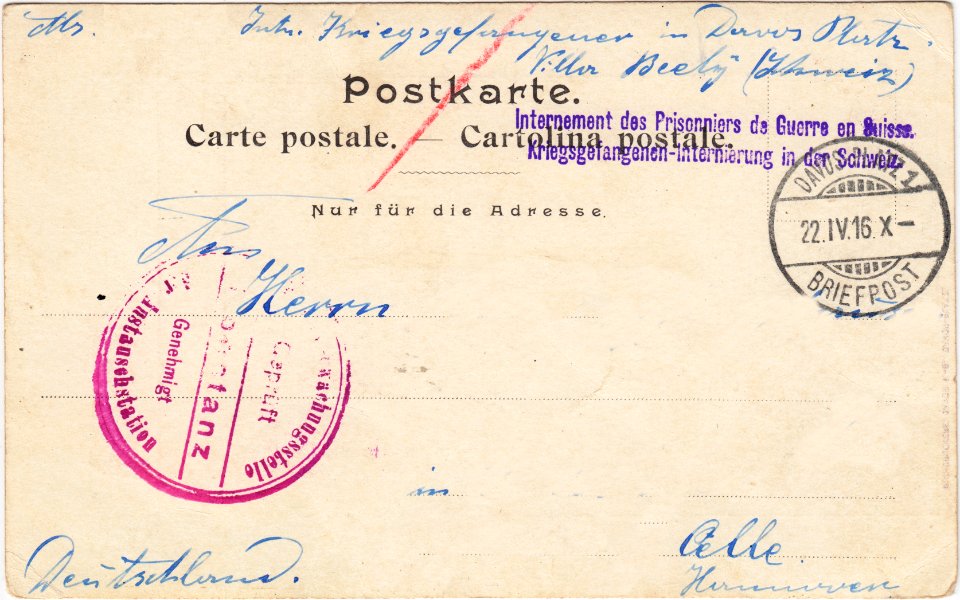 Abs. Intr. Kriegsgefangener in Davos Platz.
Villa Beely (Schweiz)
Postkarte.
Carte postale. — Cartolina postale.
Internement des Prisonniers de Guerre en Suisse.
Kriegsgefangenen-Internierung in der Schweiz.
Nur für die Adresse.
DAVOS-PLATZ 1
22.IV.16.X—
BRIEFPOST
An
Herrn
Auslandstation
Genehmigt
Geprüft
in
Celle
Hannover
Deutschland.